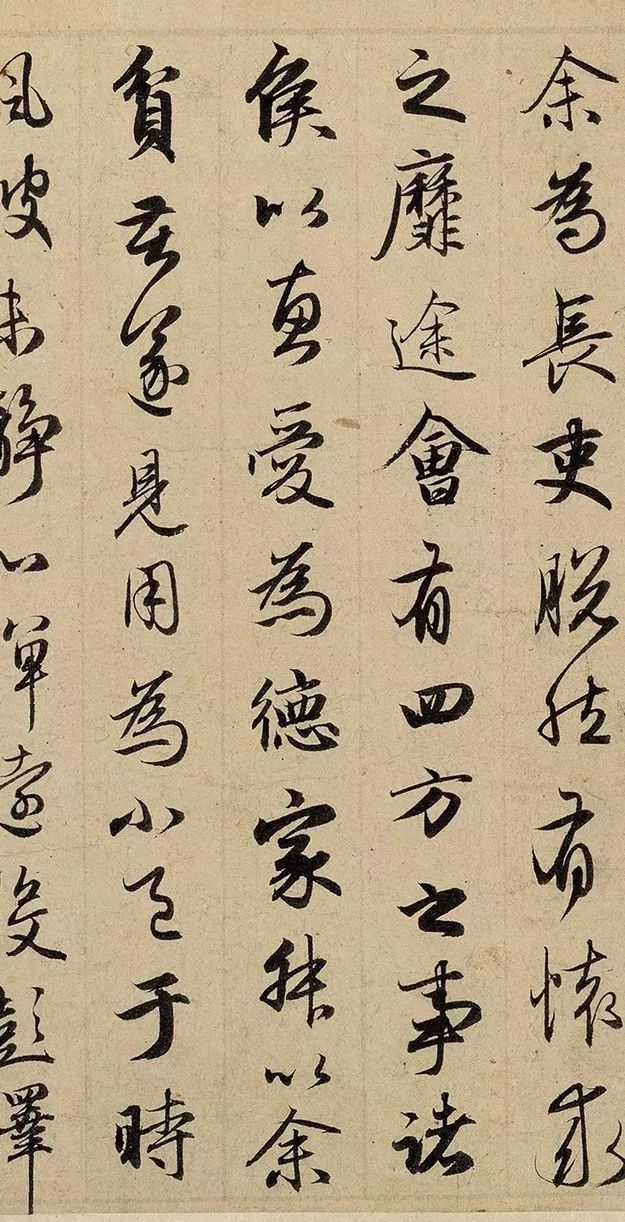 余為長吏脫然有懷求
之靡途會有四方之事諸
侯以惠愛為德家叔以余
貧苦遂見用為小邑于時
風波未靜心憚遠役彭澤